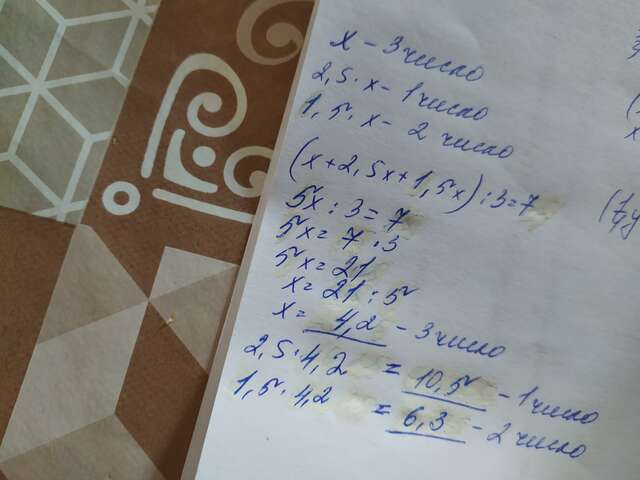 x - 3 число
2,5 · x - 1 число
1,5 · x - 2 число
(x + 2,5x + 1,5x) : 3 = 7
5x : 3 = 7
5x = 7 · 3
5x = 21
x = 21 : 5
x = 4,2 - 3 число
2,5 · 4,2 = 10,5 - 1 число
1,5 · 4,2 = 6,3 - 2 число